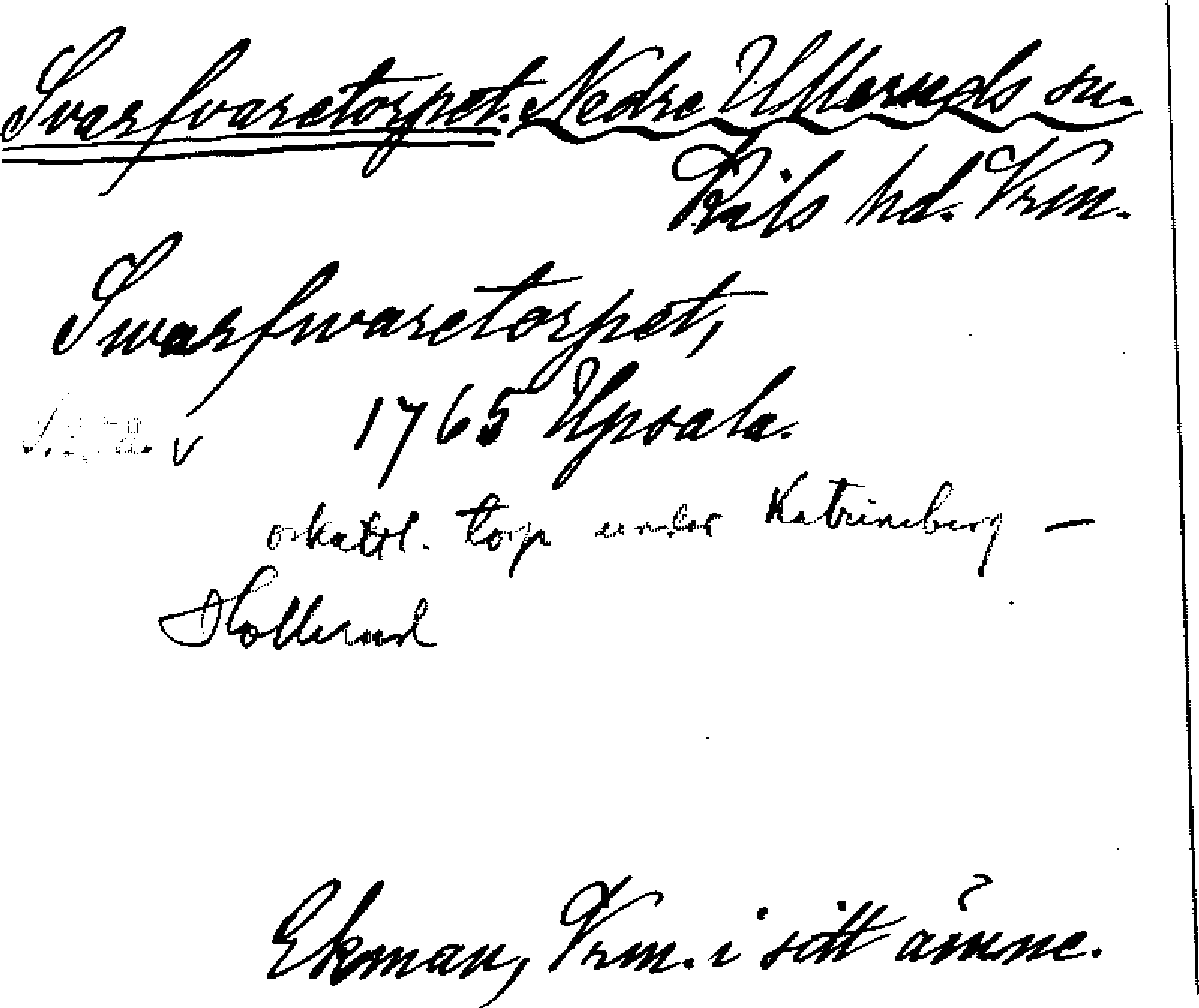 Svarfvaretorpet. Nedre Ulleruds sn.
Kils hd. Vrm.
Swarfwaretorpet,
1765 Upsala.
oskattl. torp under Katrineberg –
Hollerud
Ekman, Vrm. i sitt ämne.